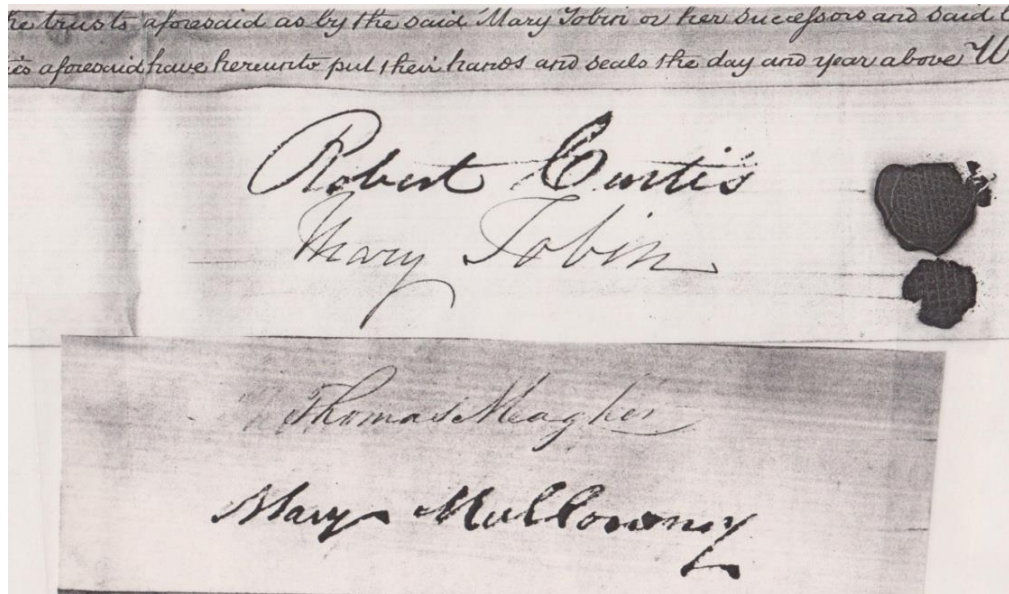 he trusts aforesaid as by the said Mary Tobin or her successors and said
aforesaid have hereunto put their hands and seals the day and year above W
Robert Curtis
Mary Tobin
Thomas Meagher
Mary Mullowney